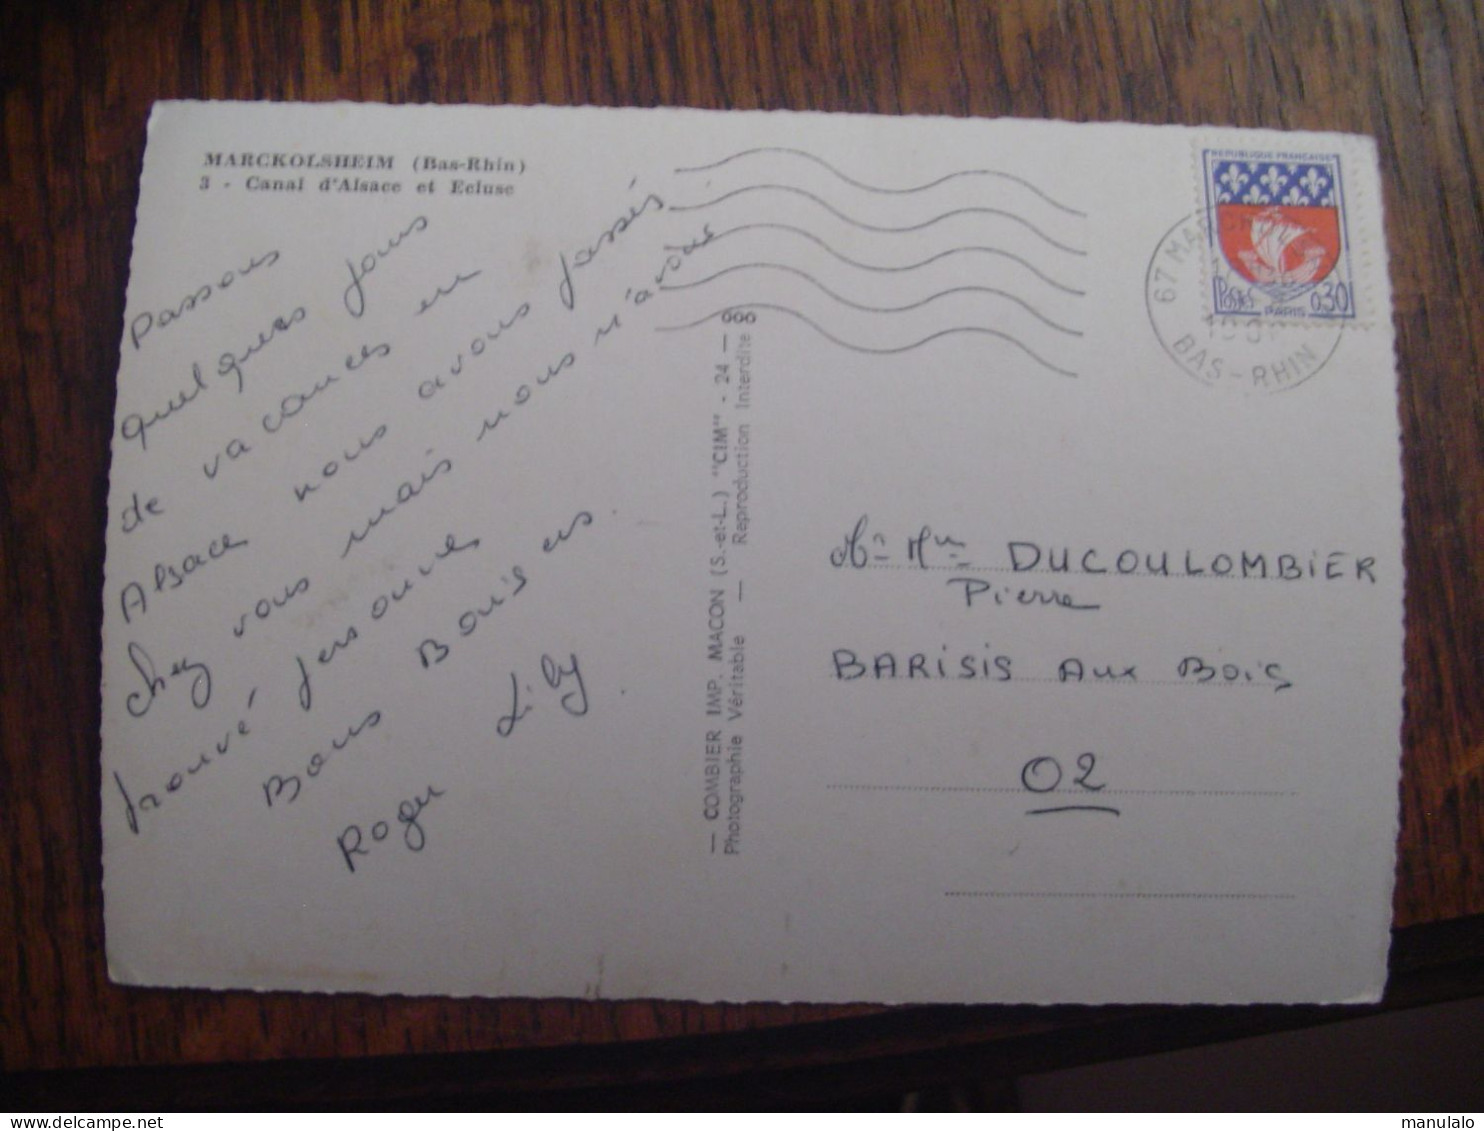 MARCKOLSHEIM (Bas-Rhin)
3 - Canal d'Alsace et Ecluse
Passons
quelques jours
de vacances en
Alsace nous avons passés
chez vous mais nous n'avons
trouvé personnes
Bons Bouis es
Roger Lily
— COMBIER IMP. MACON (S.-et-L.) "CIM" - 24 — 000
Photographie Véritable — Reproduction Interdite
REPUBLIQUE FRANÇAISE
Postes 0,30
PARIS
67
BAS-RHIN
Mr Mme DUCOULOMBIER
Pierre
BARISIS Aux Bois
02
www.delcampe.net
manulalo